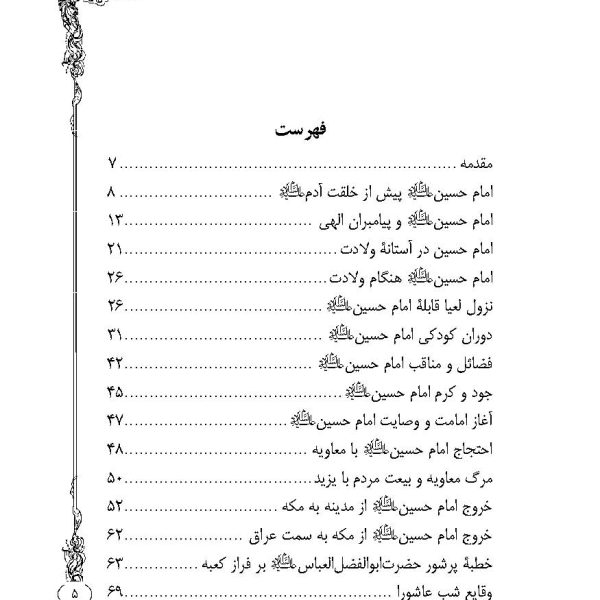 فهرست
مقدمه ........ ۷
امام حسین علیه‌السلام پیش از خلقت آدم علیه‌السلام ........ ۸
امام حسین علیه‌السلام و پیامبران الهی ........ ۱۳
امام حسین در آستانهٔ ولادت ........ ۲۱
امام حسین علیه‌السلام هنگام ولادت ........ ۲۶
نزول لعیا قابلهٔ امام حسین علیه‌السلام ........ ۲۶
دوران کودکی امام حسین علیه‌السلام ........ ۳۱
فضائل و مناقب امام حسین علیه‌السلام ........ ۴۲
جود و کرم امام حسین علیه‌السلام ........ ۴۵
آغاز امامت و وصایت امام حسین علیه‌السلام ........ ۴۷
احتجاج امام حسین علیه‌السلام با معاویه ........ ۴۸
مرگ معاویه و بیعت مردم با یزید ........ ۵۰
خروج امام حسین علیه‌السلام از مدینه به مکه ........ ۵۲
خروج امام حسین علیه‌السلام از مکه به سمت عراق ........ ۶۲
خطبهٔ پرشور حضرت‌ابوالفضل‌العباس علیه‌السلام بر فراز کعبه ........ ۶۳
وقایع شب عاشورا ........ ۶۹
۵